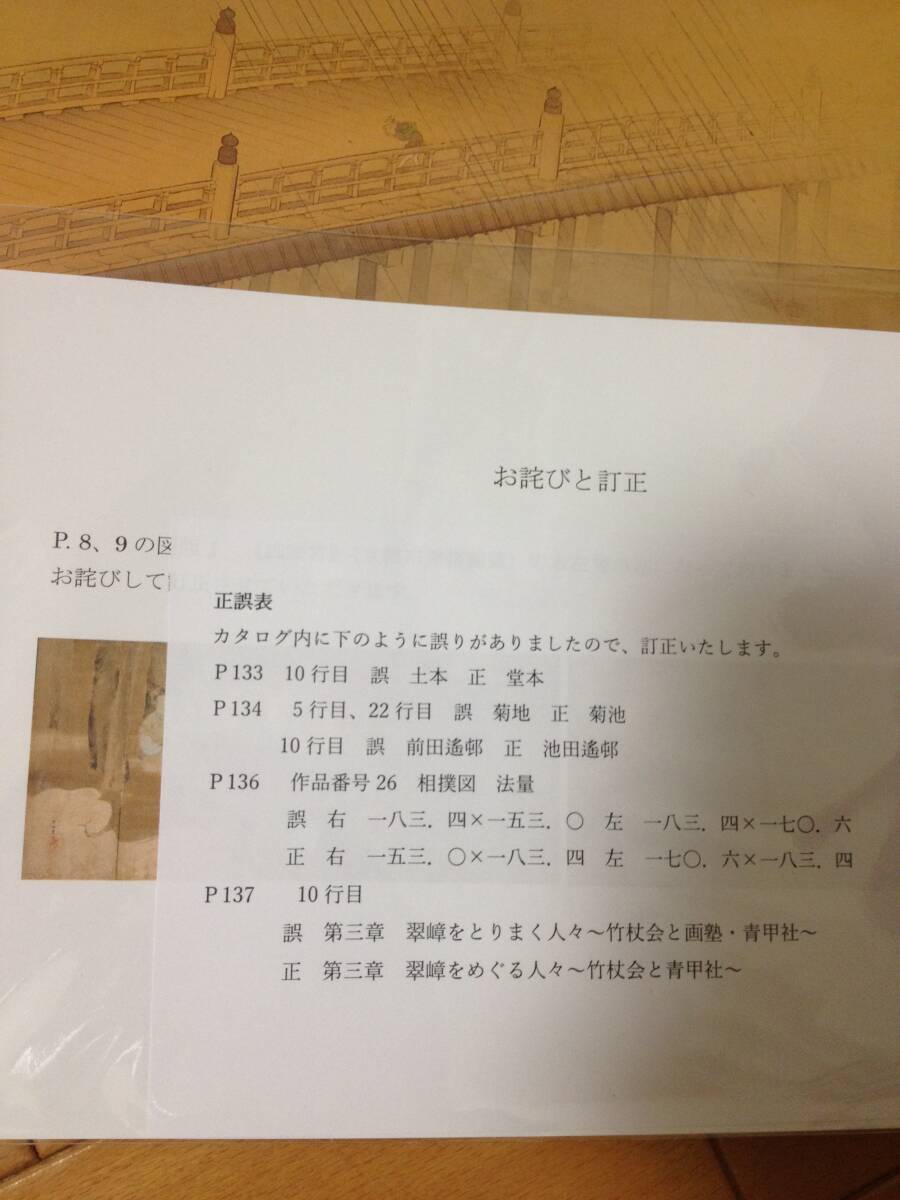 お詫びと訂正
P. 8、9の図
お詫びして
正誤表
カタログ内に下のように誤りがありましたので、訂正いたします。
P133 10行目 誤 土本 正 堂本
P134 5行目、22行目 誤 菊地 正 菊池
10行目 誤 前田遙邨 正 池田遙邨
P136 作品番号26 相撲図 法量
誤 右 一八三．四×一五三．〇 左 一八三．四×一七〇．六
正 右 一五三．〇×一八三．四 左 一七〇．六×一八三．四
P137 10行目
誤 第三章 翠嶂をとりまく人々～竹杖会と画塾・青甲社～
正 第三章 翠嶂をめぐる人々～竹杖会と青甲社～